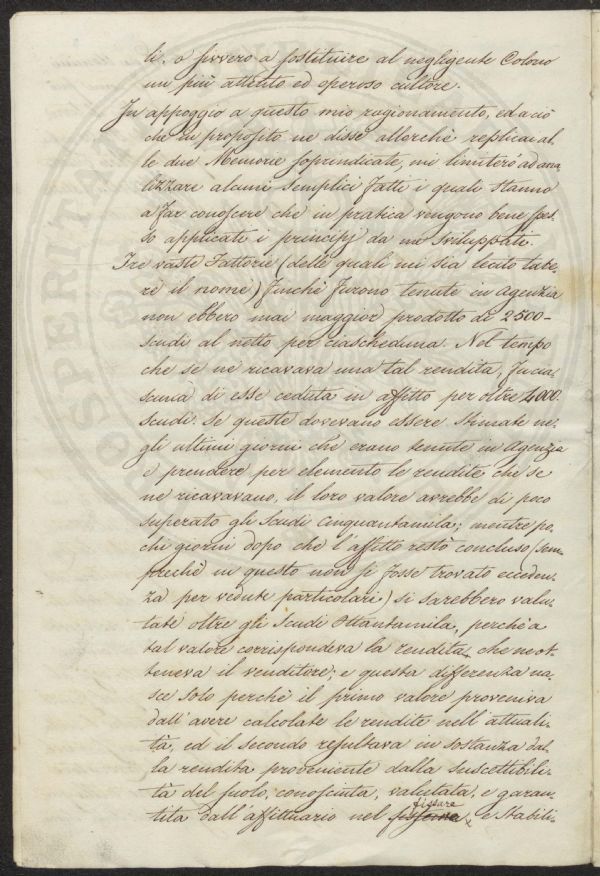 li, o sivvero a sostituire al negligente Colono
un più attento ed operoso cultore.
In appoggio a questo mio ragionamento, ed a ciò
che in proposito ne dissi allorchè replicai al-
le due Memorie soprindicate, mi limiterò ad ana-
lizzare alcuni semplici fatti i quali stanno
a far conoscere che in pratica vengono bene spes-
so applicati i principj da me sviluppati.
Tre vaste Fattorie (delle quali mi sia lecito tace-
re il nome) finchè furono tenute in agenzia
non ebbero mai maggior prodotto di 2500 -
scudi al netto per ciascheduna. Nel tempo
che se ne ricavava una tal rendita, fu cia-
scuna di esse ceduta in affitto per oltre 4000.
scudi. Se queste dovevano essere stimate ne-
gli ultimi giorni che erano tenute in Agenzia
e prendere per elemento le rendite che se
ne ricavavano, il loro valore avrebbe di poco
superato gli Scudi Cinquantamila; mentre po-
chi giorni dopo che l'affitto restò concluso (sem-
prechè in questo non si fosse trovato ecceden-
za per vedute particolari) si sarebbero valu-
tate oltre gli Scudi Ottantamila, perchè a
tal valore corrispondeva la rendita, che ne ot-
teneva il venditore; e questa differenza na-
sce solo perchè il primo valore proveniva
dall'avere calcolate le rendite nell'attuali-
tà, ed il secondo resultava in sostanza dal-
la rendita proveniente dalla suscettibili-
tà del suolo, conosciuta, valutata, e garan-
tita dall'affittuario nel fissare, e stabili-
PROSPERITA